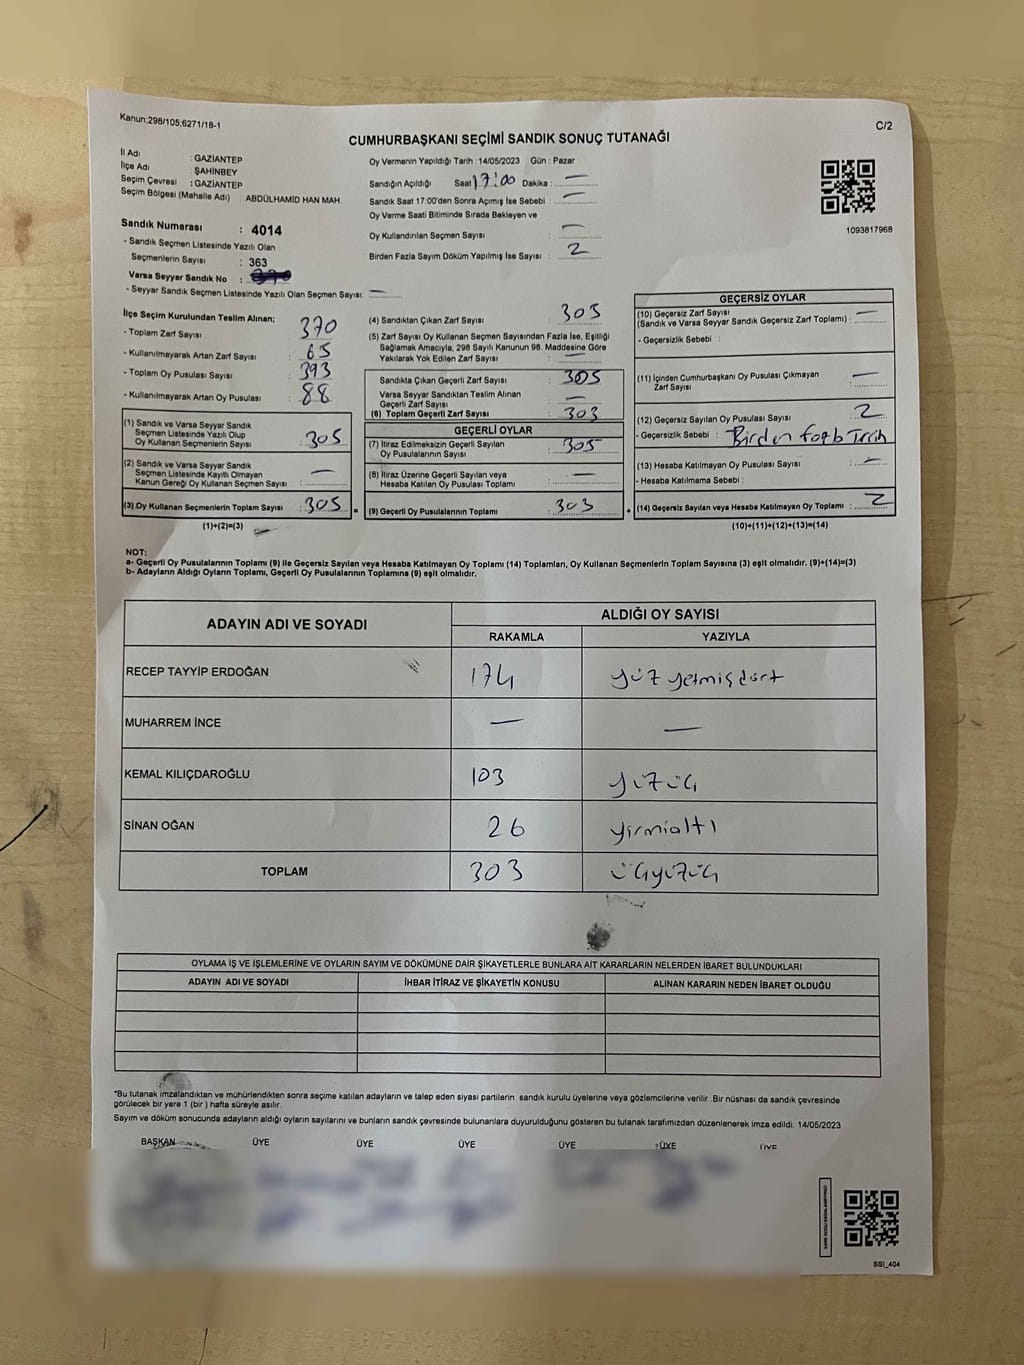 Kanun;298/105;6271/18-1
C/2
CUMHURBAŞKANI SEÇİMİ SANDIK SONUÇ TUTANAĞI
İl Adı : GAZİANTEP
İlçe Adı : ŞAHİNBEY
Seçim Çevresi : GAZİANTEP
Seçim Bölgesi (Mahalle Adı) : ABDÜLHAMİD HAN MAH.
Sandık Numarası : 4014
- Sandık Seçmen Listesinde Yazılı Olan
Seçmenlerin Sayısı : 363
Varsa Seyyar Sandık No :
- Seyyar Sandık Seçmen Listesinde Yazılı Olan Seçmen Sayısı: —
Oy Vermenin Yapıldığı Tarih : 14/05/2023 Gün : Pazar
Sandığın Açıldığı Saat 17:00 Dakika : —
Sandık Saat 17:00'den Sonra Açımış İse Sebebi : —
Oy Verme Saati Bitiminde Sırada Bekleyen ve
Oy Kullandırılan Seçmen Sayısı : —
Birden Fazla Sayım Döküm Yapılmış İse Sayısı : 2
1093817968
İlçe Seçim Kurulundan Teslim Alınan;
- Toplam Zarf Sayısı : 370
- Kullanılmayarak Artan Zarf Sayısı : 65
- Toplam Oy Pusulası Sayısı : 393
- Kullanılmayarak Artan Oy Pusulası : 88
(1) Sandık ve Varsa Seyyar Sandık
Seçmen Listesinde Yazılı Olup
Oy Kullanan Seçmenlerin Sayısı : 305
(2) Sandık ve Varsa Seyyar Sandık
Seçmen Listesinde Kayıtlı Olmayan
Kanun Gereği Oy Kullanan Seçmen Sayısı : —
(3) Oy Kullanan Seçmenlerin Toplam Sayısı : 305
(1)+(2)=(3)
(4) Sandıktan Çıkan Zarf Sayısı : 305
(5) Zarf Sayısı Oy Kullanan Seçmen Sayısından Fazla İse, Eşitliği
Sağlamak Amacıyla; 298 Sayılı Kanunun 98. Maddesine Göre
Yakılarak Yok Edilen Zarf Sayısı : —
Sandıkta Çıkan Geçerli Zarf Sayısı : 305
Varsa Seyyar Sandıktan Teslim Alınan
Geçerli Zarf Sayısı : —
(6) Toplam Geçerli Zarf Sayısı : 303
GEÇERLİ OYLAR
(7) İtiraz Edilmeksizin Geçerli Sayılan
Oy Pusulalarının Sayısı : 305
(8) İtiraz Üzerine Geçerli Sayılan veya
Hesaba Katılan Oy Pusulası Toplamı : —
(9) Geçerli Oy Pusulalarının Toplamı : 303
GEÇERSİZ OYLAR
(10) Geçersiz Zarf Sayısı
(Sandık ve Varsa Seyyar Sandık Geçersiz Zarf Toplamı) : —
- Geçersizlik Sebebi :
(11) İçinden Cumhurbaşkanı Oy Pusulası Çıkmayan
Zarf Sayısı : —
(12) Geçersiz Sayılan Oy Pusulası Sayısı : 2
- Geçersizlik Sebebi : Birden
(13) Hesaba Katılmayan Oy Pusulası Sayısı : —
- Hesaba Katılmama Sebebi :
(14) Geçersiz Sayılan veya Hesaba Katılmayan Oy Toplamı : 2
(10)+(11)+(12)+(13)=(14)
NOT:
a- Geçerli Oy Pusulalarının Toplamı (9) ile Geçersiz Sayılan veya Hesaba Katılmayan Oy Toplamı (14) Toplamları, Oy Kullanan Seçmenlerin Toplam Sayısına (3) eşit olmalıdır. (9)+(14)=(3)
b- Adayların Aldığı Oyların Toplamı, Geçerli Oy Pusulalarının Toplamına (9) eşit olmalıdır.
ADAYIN ADI VE SOYADI
ALDIĞI OY SAYISI
RAKAMLA YAZIYLA
RECEP TAYYİP ERDOĞAN 174 yüz yetmiş dört
MUHARREM İNCE — —
KEMAL KILIÇDAROĞLU 103 yüzüç
SİNAN OĞAN 26 yirmialtı
TOPLAM 303 üçyüzüç
OYLAMA İŞ VE İŞLEMLERİNE VE OYLARIN SAYIM VE DÖKÜMÜNE DAİR ŞİKAYETLERLE BUNLARA AİT KARARLARIN NELERDEN İBARET BULUNDUKLARI
ADAYIN ADI VE SOYADI İHBAR İTİRAZ VE ŞİKAYETİN KONUSU ALINAN KARARIN NEDEN İBARET OLDUĞU
*Bu tutanak imzalandıktan ve mühürlendikten sonra seçime katılan adayların ve talep eden siyasi partilerin sandık kurulu üyelerine veya gözlemcilerine verilir .Bir nüshası da sandık çevresinde
görülecek bir yere 1 (bir ) hafta süreyle asılır.
Sayım ve döküm sonucunda adayların aldığı oyların sayılarını ve bunların sandık çevresinde bulunanlara duyurulduğunu gösteren bu tutanak tarafımızdan düzenlenerek imza edildi. 14/05/2023
BAŞKAN ÜYE ÜYE ÜYE ÜYE ÜYE ÜYE
SSI_404